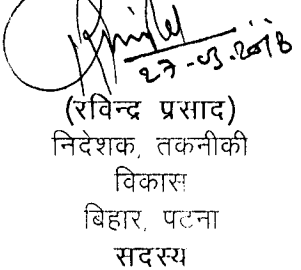 27-03-2018
(रविन्द्र प्रसाद)
निदेशक, तकनीकी
विकास
बिहार, पटना
सदस्य